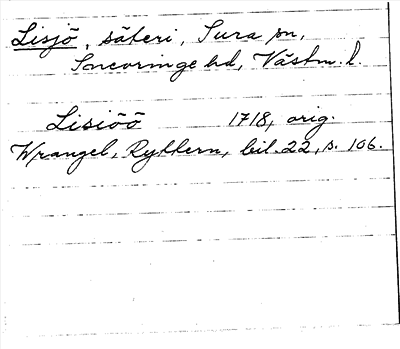 Lisjö, säteri, Sura sn,
Snevringe hd, Västm. l.
Lisiöö 1718, orig.
Wrangel, Ryttern, bil. 22, s. 106.